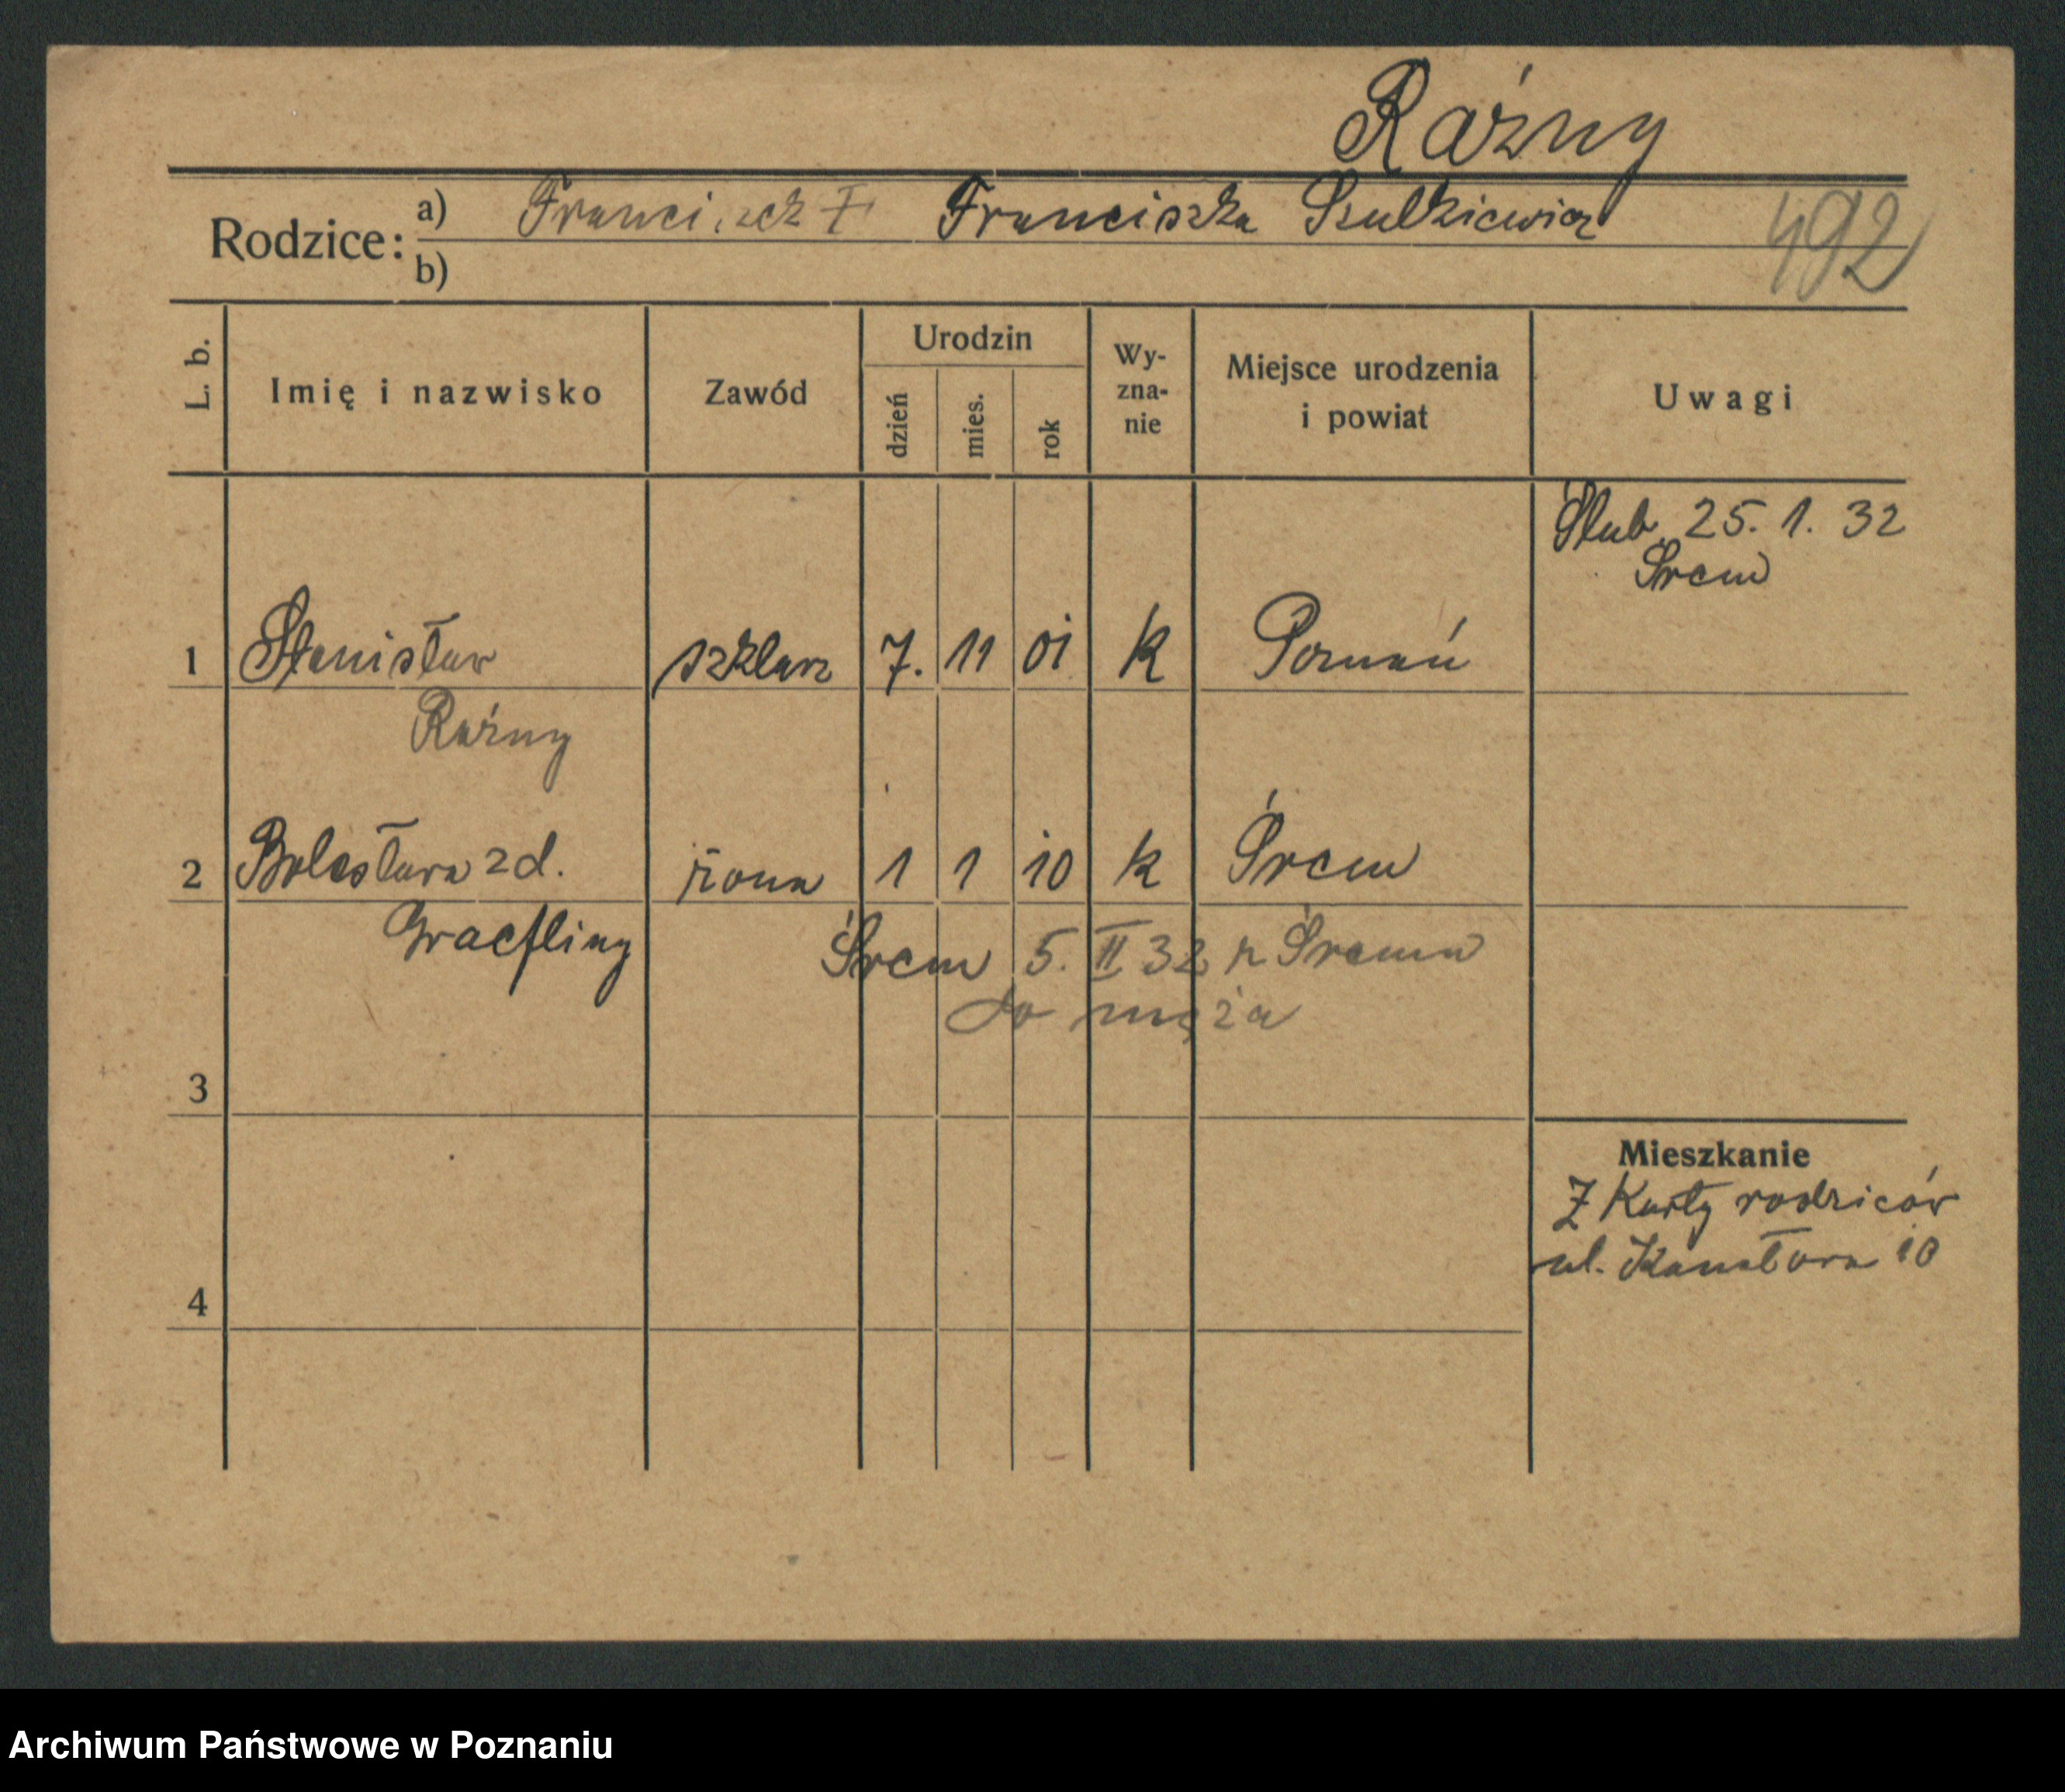 Raźny
Rodzice: a) Franciszek I Franciszka Szulkiewicz
b)
492
L. b. Imię i nazwisko Zawód Urodzin dzień mies. rok Wy-zna-nie Miejsce urodzenia i powiat Uwagi
Ślub 25. 1. 32
Śrem
1 Stanisław szklarz 7. 11 01 k Poznań
Raźny
2 Bolesława zd. żona 1 1 10 k Śrem
Graefling
Śrem 5. II 32 z Śremu
do męża
3
Mieszkanie
Z Karty rodziców
ul. Kanałowa 10
4
Archiwum Państwowe w Poznaniu